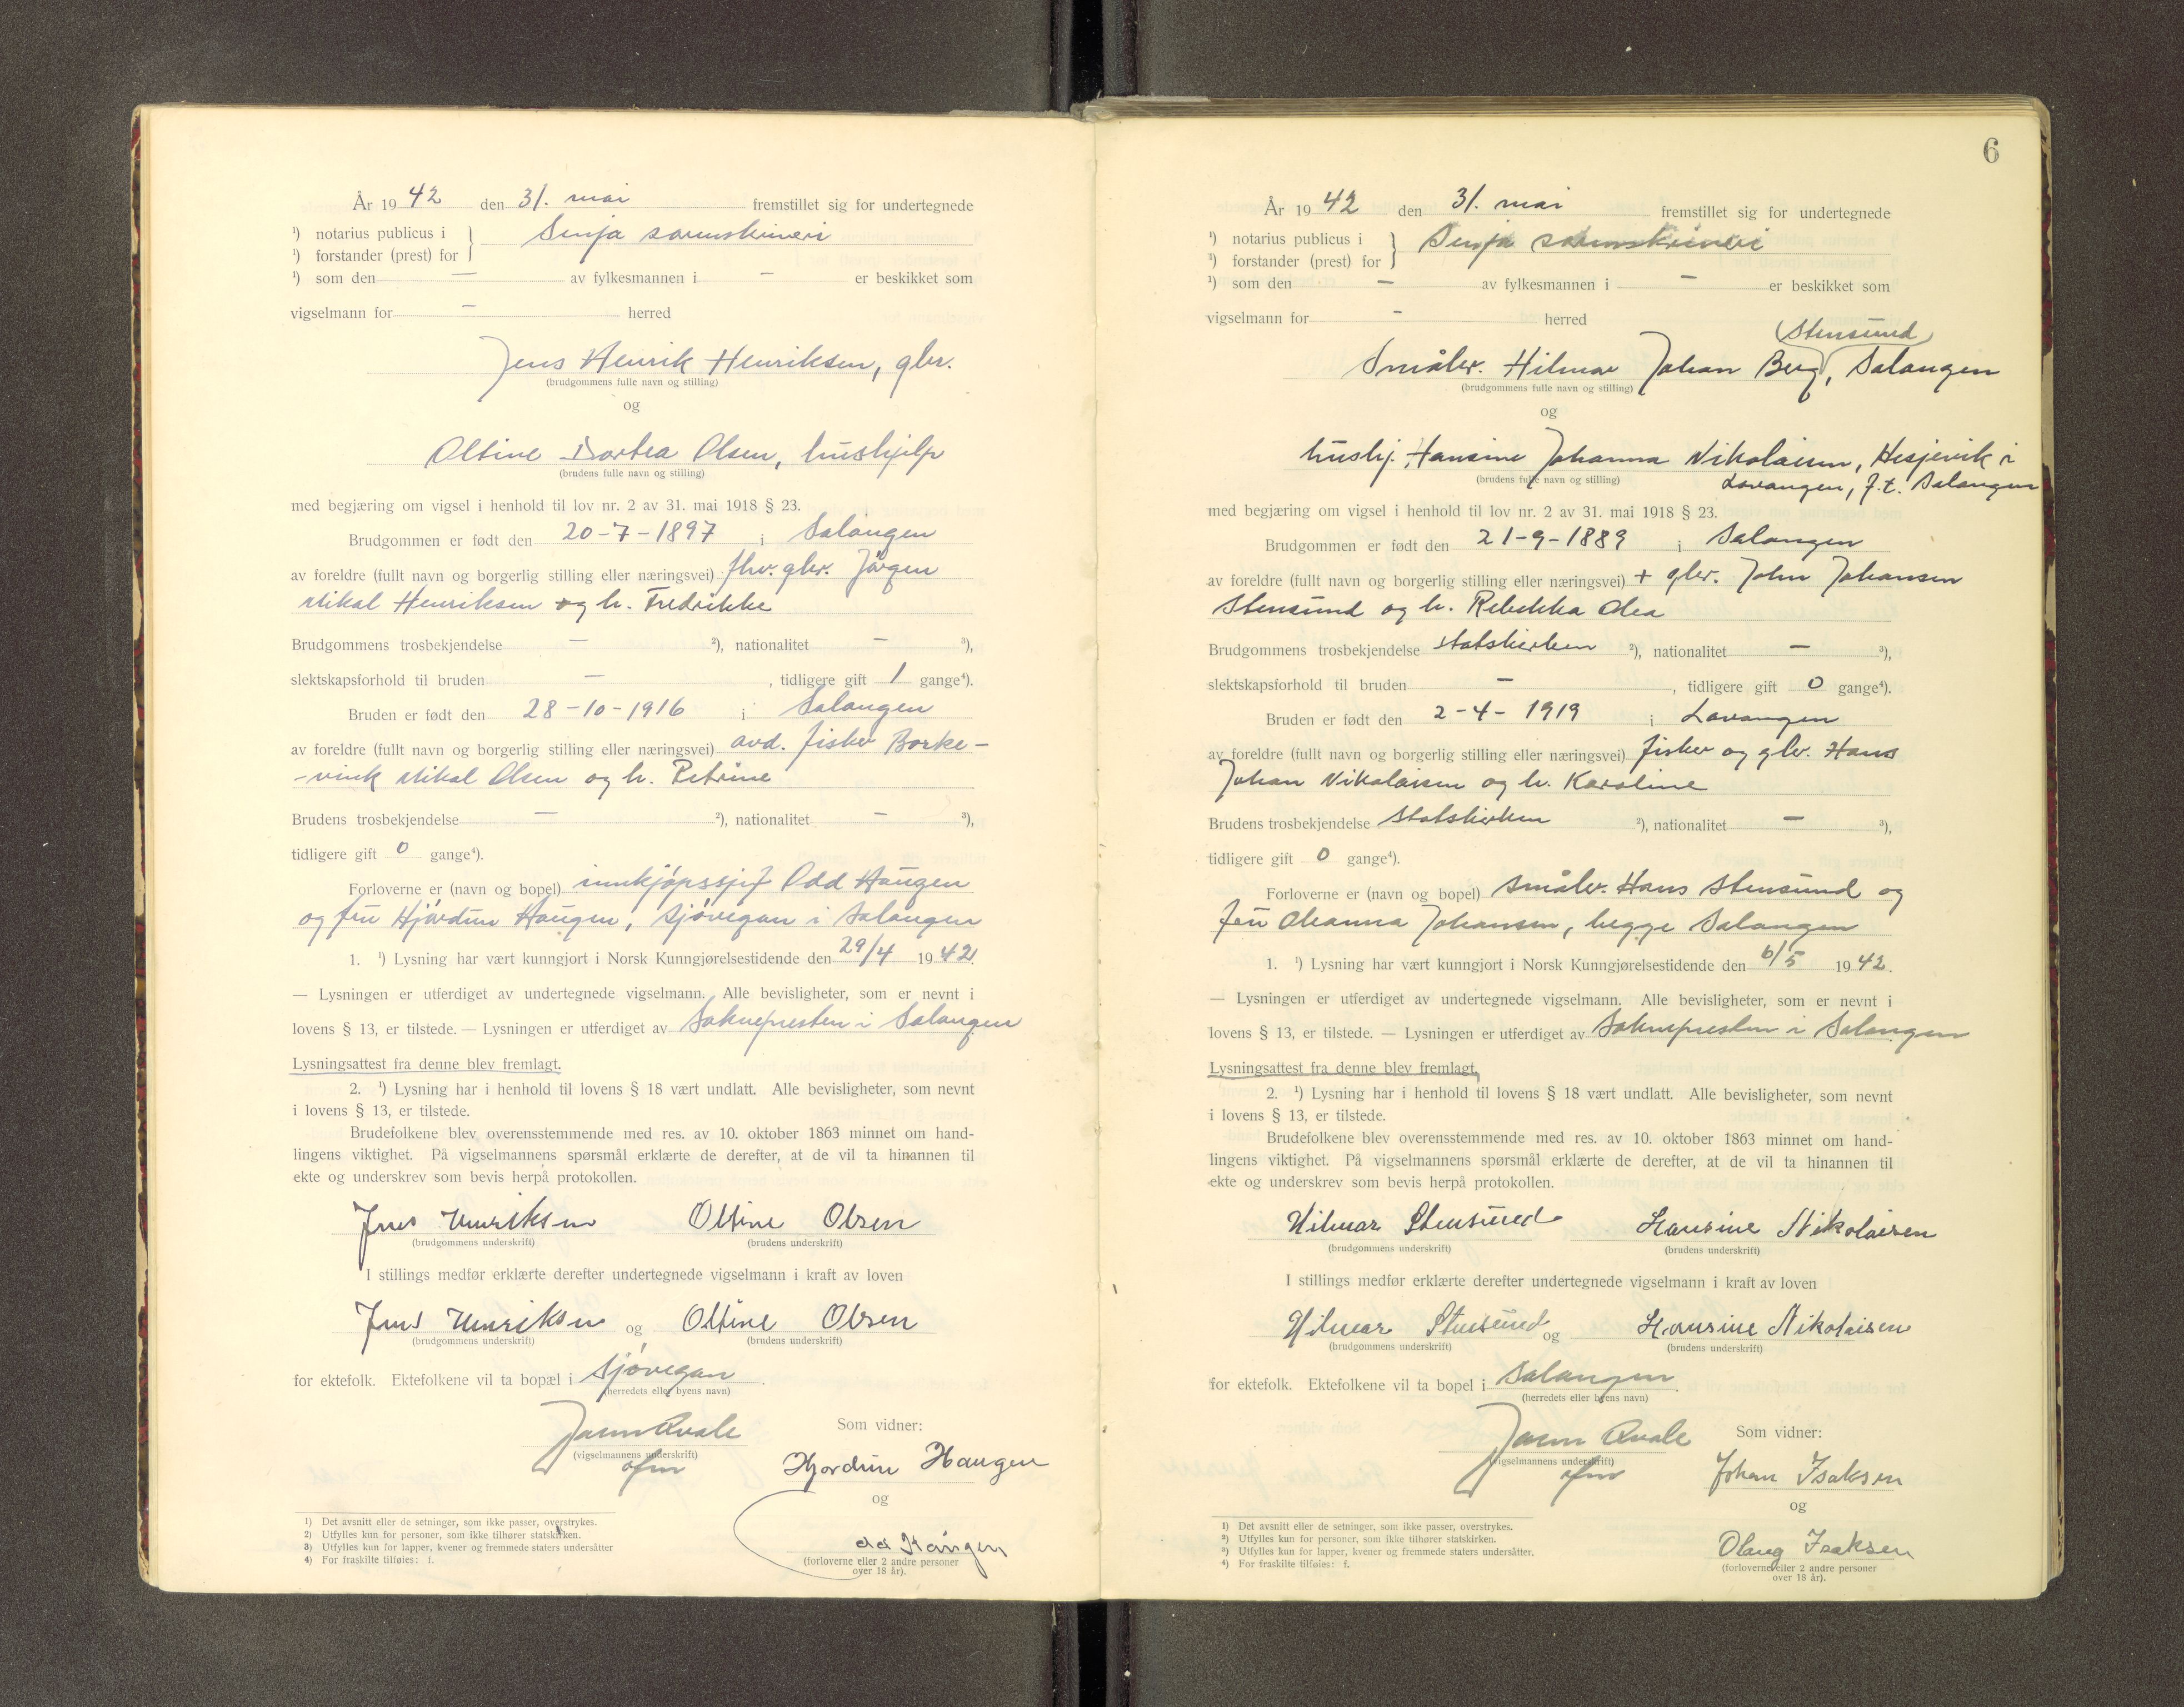 År 1942 den 31. mai fremstillet sig for undertegnede
¹) notarius publicus i } Senja sorenskriveri
¹) forstander (prest) for
¹) som den — av fylkesmannen i — er beskikket som
vigselmann for — herred
Jens Henrik Henriksen, gbr.
(brudgommens fulle navn og stilling)
og
Oltine Dortea Olsen, hushjelp
(brudens fulle navn og stilling)
med begjæring om vigsel i henhold til lov nr. 2 av 31. mai 1918 § 23.
Brudgommen er født den 20-7-1897 i Salangen
av foreldre (fullt navn og borgerlig stilling eller næringsvei) fhv. gbr. Jørgen
Mikal Henriksen og h. Fredrikke
Brudgommens trosbekjendelse — ²), nationalitet — ³),
slektskapsforhold til bruden — , tidligere gift 1 gange⁴).
Bruden er født den 28-10-1916 i Salangen
av foreldre (fullt navn og borgerlig stilling eller næringsvei) avd. fisker Borke-
-vink Mikal Olsen og h. Petrine
Brudens trosbekjendelse — ²), nationalitet — ³),
tidligere gift 0 gange⁴).
Forloverne er (navn og bopel) innkjøpssjef Odd Haugen
og fru Hjørdun Haugen, Sjøvegan i Salangen
1. ¹) Lysning har vært kunngjort i Norsk Kunngjørelsestidende den 29/4 1942.
— Lysningen er utferdiget av undertegnede vigselmann. Alle bevisligheter, som er nevnt i
lovens § 13, er tilstede. — Lysningen er utferdiget av Soknepresten i Salangen
Lysningsattest fra denne blev fremlagt.
2. ¹) Lysning har i henhold til lovens § 18 vært undlatt. Alle bevisligheter, som nevnt
i lovens § 13, er tilstede.
Brudefolkene blev overensstemmende med res. av 10. oktober 1863 minnet om hand-
lingens viktighet. På vigselmannens spørsmål erklærte de derefter, at de vil ta hinannen til
ekte og underskrev som bevis herpå protokollen.
Jens Henriksen Oltine Olsen
(brudgommens underskrift) (brudens underskrift)
I stillings medfør erklærte derefter undertegnede vigselmann i kraft av loven
Jens Henriksen og Oltine Olsen
(brudgommens underskrift) (brudens underskrift)
for ektefolk. Ektefolkene vil ta bopæl i Sjøvegan.
(herredets eller byens navn)
Som vidner:
(vigselmannens underskrift)
Hjordun Haugen
og
Odd Haugen
(forloverne eller 2 andre personer
over 18 år).
1) Det avsnitt eller de setninger, som ikke passer, overstrykes.
2) Utfylles kun for personer, som ikke tilhører statskirken.
3) Utfylles kun for lapper, kvener og fremmede staters undersåtter
4) For fraskilte tilføies: f.
6
År 1942 den 31. mai fremstillet sig for undertegnede
¹) notarius publicus i } Senja sorenskriveri
¹) forstander (prest) for
¹) som den — av fylkesmannen i — er beskikket som
vigselmann for — herred
(Stensund)
Småbr. Hilmar Johan Berg, Salangen
(brudgommens fulle navn og stilling)
og
hushj. Hansine Johanna Nikolaisen, Hesjevik i
(brudens fulle navn og stilling) Lavangen, f.t. Salangen
med begjæring om vigsel i henhold til lov nr. 2 av 31. mai 1918 § 23.
Brudgommen er født den 21-9-1889 i Salangen
av foreldre (fullt navn og borgerlig stilling eller næringsvei) + gbr. John Johansen
Stensund og h. Rebekka Olea
Brudgommens trosbekjendelse statskirken ²), nationalitet — ³),
slektskapsforhold til bruden — , tidligere gift 0 gange⁴).
Bruden er født den 2-4-1919 i Lavangen
av foreldre (fullt navn og borgerlig stilling eller næringsvei) fisker og gbr. Hans
Johan Nikolaisen og h. Karoline
Brudens trosbekjendelse statskirken ²), nationalitet — ³),
tidligere gift 0 gange⁴).
Forloverne er (navn og bopel) småbr. Hans Stensund og
fru Oleanna Johansen, begge Salangen
1. ¹) Lysning har vært kunngjort i Norsk Kunngjørelsestidende den 6/5 1942.
— Lysningen er utferdiget av undertegnede vigselmann. Alle bevisligheter, som er nevnt i
lovens § 13, er tilstede. — Lysningen er utferdiget av Soknepresten i Salangen
Lysningsattest fra denne blev fremlagt.
2. ¹) Lysning har i henhold til lovens § 18 vært undlatt. Alle bevisligheter, som nevnt
i lovens § 13, er tilstede.
Brudefolkene blev overensstemmende med res. av 10. oktober 1863 minnet om hand-
lingens viktighet. På vigselmannens spørsmål erklærte de derefter, at de vil ta hinannen til
ekte og underskrev som bevis herpå protokollen.
Hilmar Stensund Hansine Nikolaisen
(brudgommens underskrift) (brudens underskrift)
I stillings medfør erklærte derefter undertegnede vigselmann i kraft av loven
Hilmar Stensund og Hansine Nikolaisen
(brudgommens underskrift) (brudens underskrift)
for ektefolk. Ektefolkene vil ta bopel i Salangen.
(herredets eller byens navn)
Som vidner:
(vigselmannens underskrift)
Johan Isaksen
og
Olaug Isaksen
(forloverne eller 2 andre personer
over 18 år).
¹) Det avsnitt eller de setninger, som ikke passer, overstrykes.
²) Utfylles kun for personer, som ikke tilhører statskirken.
³) Utfylles kun for lapper, kvener og fremmede staters undersåtter.
⁴) For fraskilte tilføies: f.